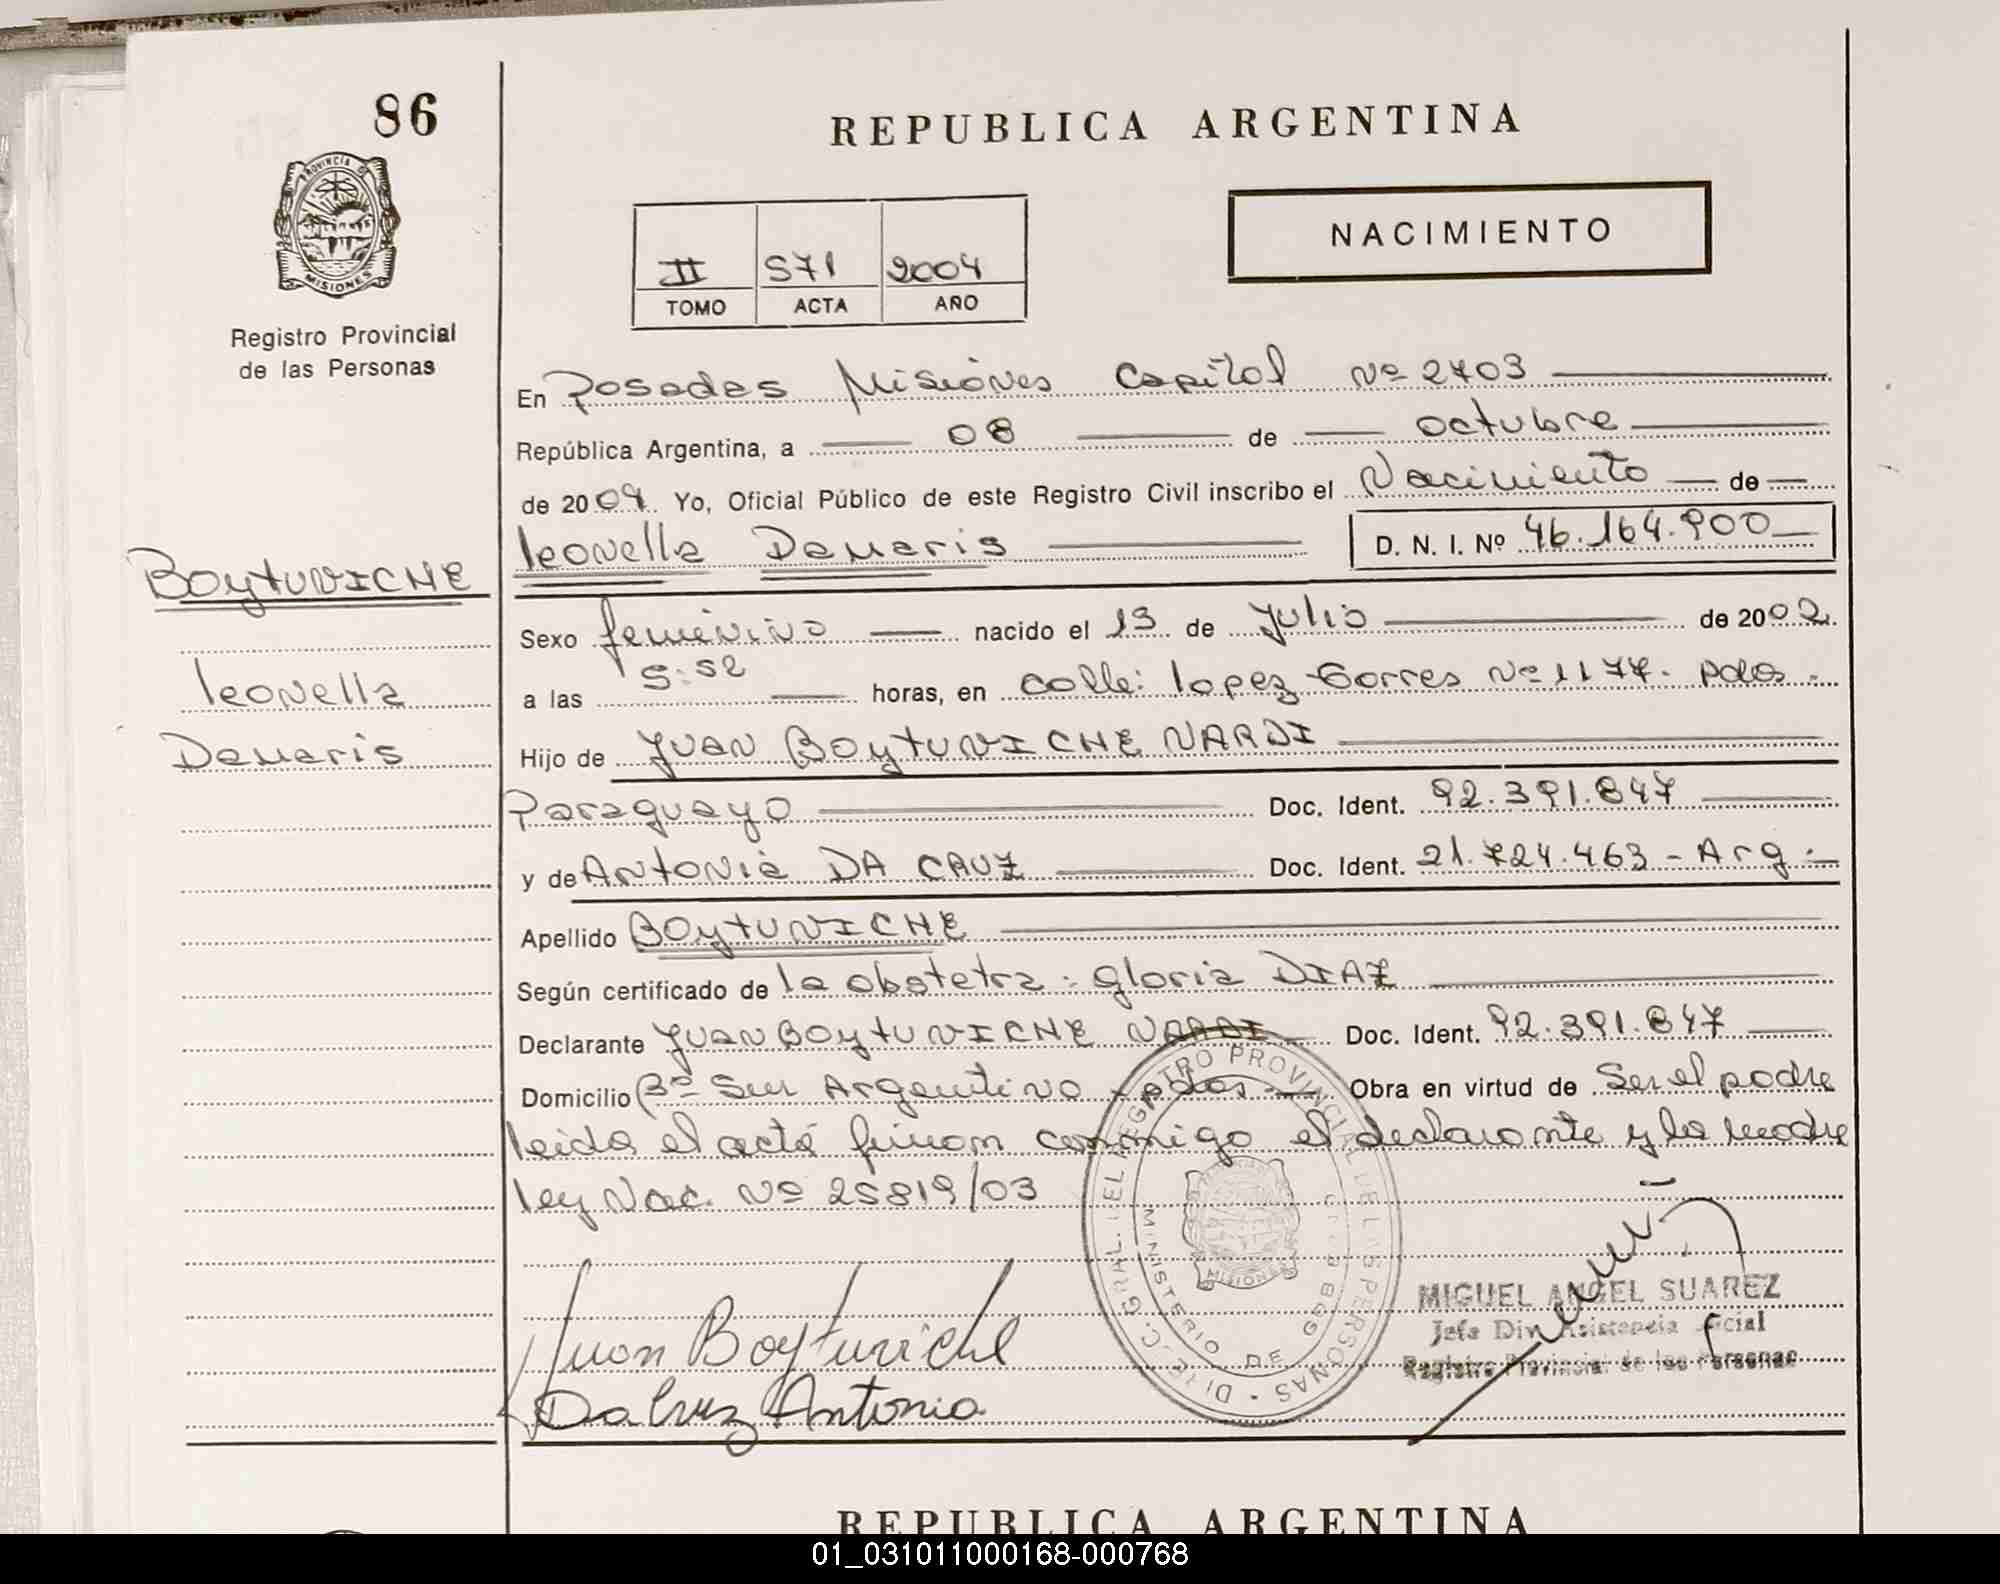 86
PROVINCIA DE
MISIONES
Registro Provincial
de las Personas
REPUBLICA ARGENTINA
NACIMIENTO
II 571 2004
TOMO ACTA AÑO
En Posadas Misiones Capital Nº 2703
República Argentina, a 08 de octubre
de 2004 Yo, Oficial Público de este Registro Civil inscribo el Nacimiento de
leonella Damaris D. N. I. Nº 46.164.900
BOYTUVICHE
leonella
Damaris
Sexo femenino nacido el 13 de Julio de 2002
a las 5:52 horas, en calle: lopez torres Nº 1177. pdas.
Hijo de JUAN BOYTUVICHE NARDI
Paraguayo Doc. Ident. 92.391.847
y de ANTONIA DA CRUZ Doc. Ident. 21.724.463 - Arg.
Apellido BOYTUVICHE
Según certificado de la obstetra: gloria DIAZ
Declarante JUAN BOYTUVICHE NARDI Doc. Ident. 92.391.847
Domicilio Bº Sur Argentino pdas Obra en virtud de Ser el padre
leida el acta firman conmigo el declarante y la madre
ley Nac. Nº 25819/03
REGISTRO PROVINCIAL DE LAS PERSONAS - DIREC. GRAL. DEL
MINISTERIO DE GOB
MISIONES
Juan Boytuviche
Da Cruz Antonia
MIGUEL ANGEL SUAREZ
Jefe Div. Asistencia Social
Registro Provincial de las Personas
REPUBLICA ARGENTINA
01_031011000168-000768